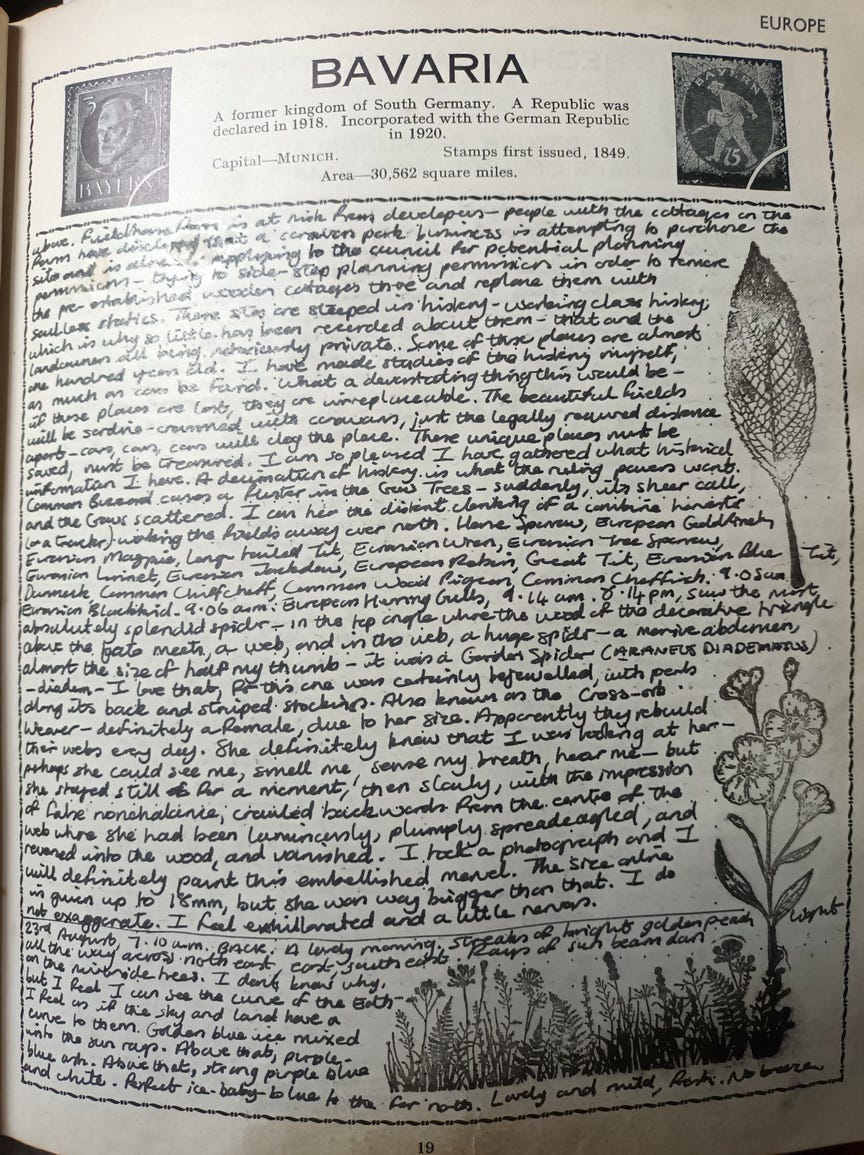 EUROPE
BAVARIA
A former kingdom of South Germany. A Republic was
declared in 1918. Incorporated with the German Republic
in 1920.
Capital—MUNICH. Stamps first issued, 1849.
Area—30,562 square miles.
3
BAYERN
BAYERN
75
above. Fieldhouse Farm is at risk from developers – people with the cottages on the
farm have disclosed that a caravan park business is attempting to purchase the
site and is applying to the council for potential planning
permissions – trying to side-step planning permission in order to remove
the pre-established wooden cottages there and replace them with
soulless statics. These sites are steeped in history – working class history,
which is why so little has been recorded about them – that and the
landowners all being notoriously private. Some of these places are almost
one hundred years old. I have made studies of the history myself,
as much as can be found. What a devastating thing this would be –
if these places are lost, they are irreplaceable. The beautiful fields
will be sardine-crammed with caravans, just the legally required distance
apart – cars, cars, cars will clog the place. These unique places must be
saved, must be treasured. I am so pleased I have gathered what historical
information I have. A decimation of history is what the ruling powers want.
Common Buzzard causes a fluster in the Trees – suddenly, its sheer call,
and the Crows scattered. I can hear the distant clanking of a combine harvester
(or a tractor) working the fields away over north. House Sparrow, European Goldfinch,
Eurasian Magpie, Long tailed Tit, Eurasian Wren, Eurasian Tree Sparrow,
Eurasian Linnet, Eurasian Jackdaw, European Robin, Great Tit, Eurasian Blue Tit,
Dunnock, Common Chiffchaff, Common Wood Pigeon, Common Chaffinch. 9.05am.
Eurasian Blackbird. 9.06 a.m: European Herring Gulls, 9.14 am. 8.14pm, saw the most
absolutely splendid spider – in the top angle where the wood of the decorative triangle
above the gate meets, a web, and in the web, a huge spider – a massive abdomen,
almost the size of half my thumb – it was a Garden Spider (ARANEUS DIADEMATUS)
– diadem – I love that, for this one was certainly bejewelled, with pearls
along its back and striped stockings. Also known as the Cross-orb
Weaver – definitely a female, due to her size. Apparently they rebuild
their webs every day. She definitely knew that I was looking at her –
perhaps she could see me, smell me, sense my breath, hear me – but
she stayed still for a moment, then slowly, with the impression
of false nonchalance, crawled backwards from the centre of the
web where she had been luminously, plumply spreadeagled, and
revered into the wood, and vanished. I took a photograph and I
will definitely paint this embellished marvel. The size online
is given up to 18mm, but she was way bigger than that. I do
not exaggerate. I feel exhillarated and a little nervous.
23rd August, 7.10 a.m. A lovely morning, streaks of bright golden peach light
all the way across north east, east, south east. Rays of sun beam down
on the riverside trees. I don't know why,
but I feel I can see the curve of the Earth –
I feel as if the sky and land have a
curve to them. Golden blue ice mixed
into the sun rays. Above that, purple-
blue ash. Above that, strong purple blue
and white. Perfect ice-baby-blue to the far north. Lovely and mild, fresh. No breeze
19